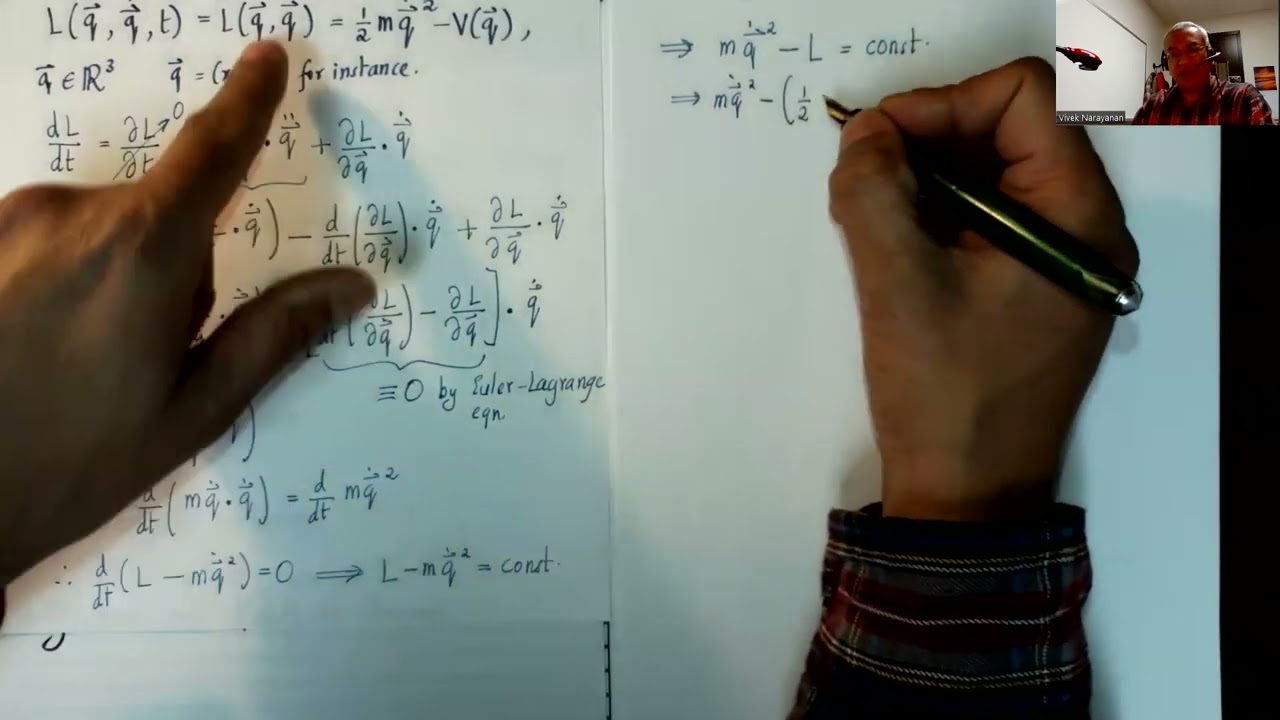 L(q⃗, q⃗̇, t) = L(q⃗, q⃗̇) = ½ m q⃗̇² − V(q⃗),
q⃗ ∈ ℝ³ q⃗ = ( for instance.
dL/dt = ∂L/∂t → 0 · q⃗̈ + ∂L/∂q⃗ · q⃗̇
· q⃗̇) − d/dt(∂L/∂q⃗) · q⃗̇ + ∂L/∂q⃗ · q⃗̇
∂L/∂q⃗) − ∂L/∂q⃗] · q⃗̇
≡ 0 by Euler-Lagrange
eqn.
d/dt(m q⃗̇ · q⃗̇) = d/dt m q⃗̇²
∴ d/dt(L − m q⃗̇²) = 0 ⟹ L − m q⃗̇² = const.
⟹ m q⃗̇² − L = const.
⟹ m q⃗̇² − (½
Vivek Narayanan